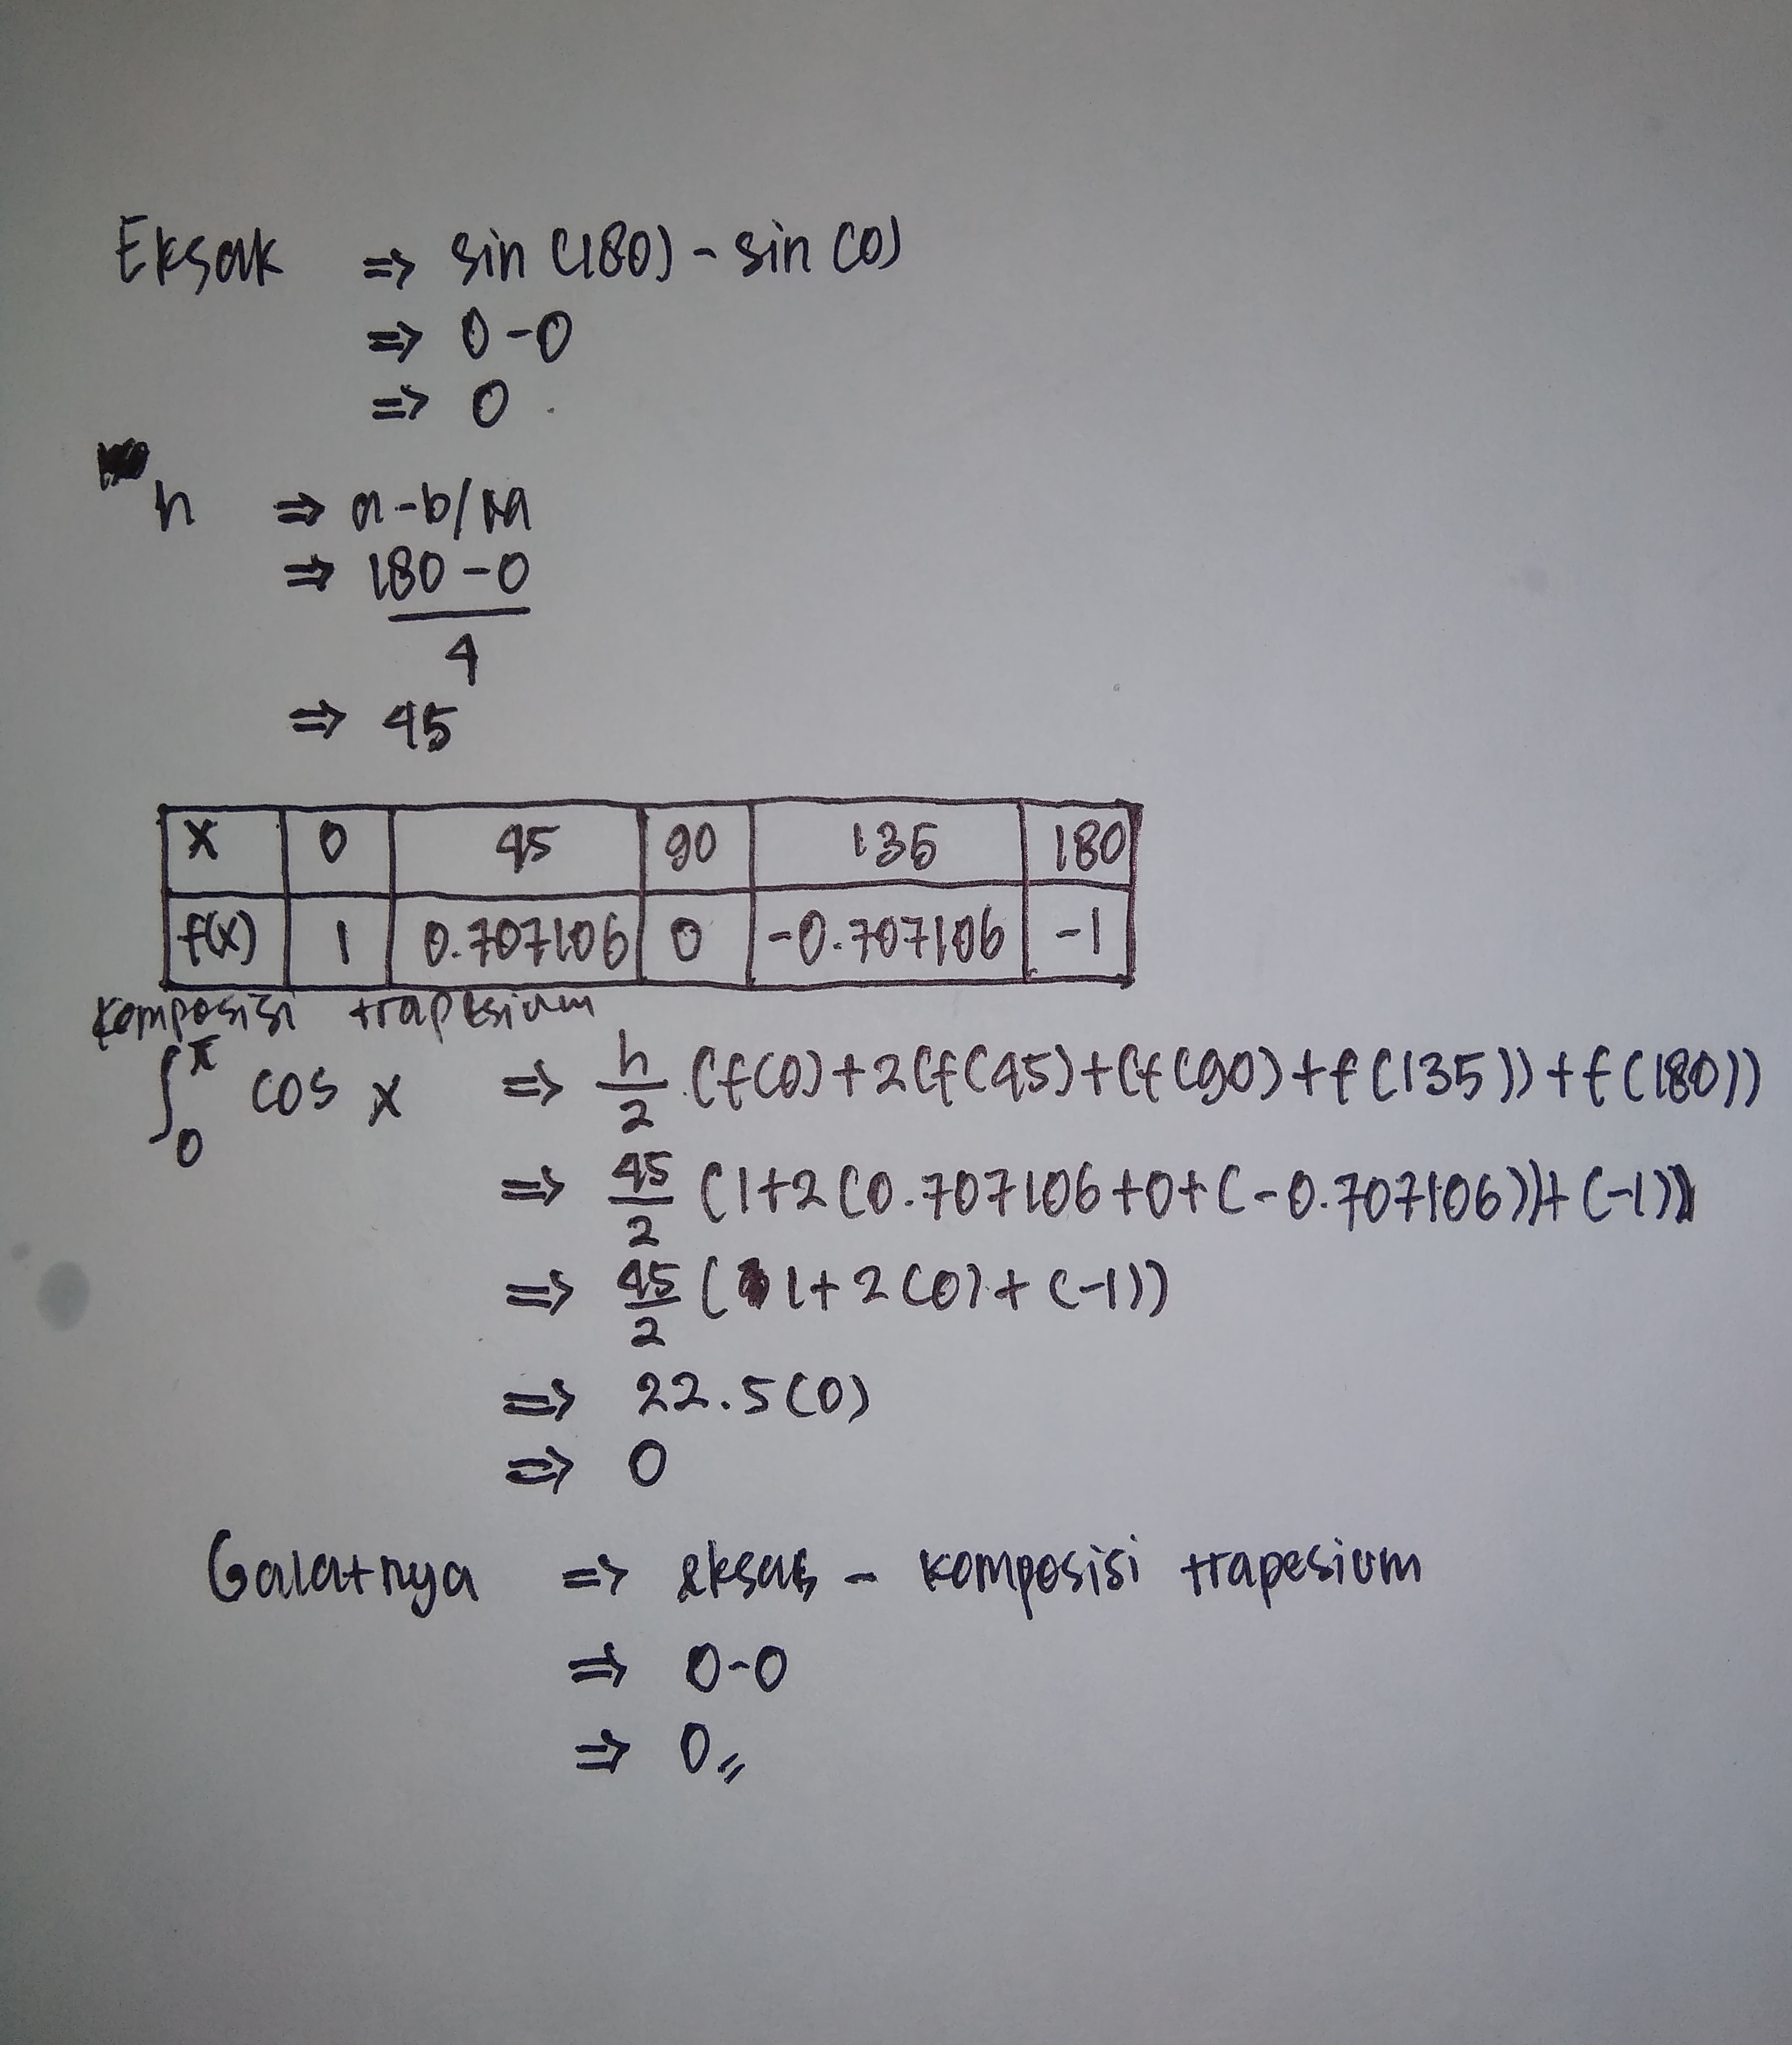 Eksak => sin (180) - sin (0)
=> 0-0
=> 0
h => a-b/
=> 180-0
4
=> 45
x 0 45 90 135 180
f(x) 1 0.707106 0 -0.707106 -1
Komposisi trapesium
∫₀^π cos x => h/2 (f(0)+2(f(45)+(f(90)+f(135))+f(180))
=> 45/2 (1+2(0.707106+0+(-0.707106))+(-1))
=> 45/2 (1+2(0)+(-1))
=> 22.5(0)
=> 0
Galatnya => eksak - komposisi trapesium
=> 0-0
=> 0,,